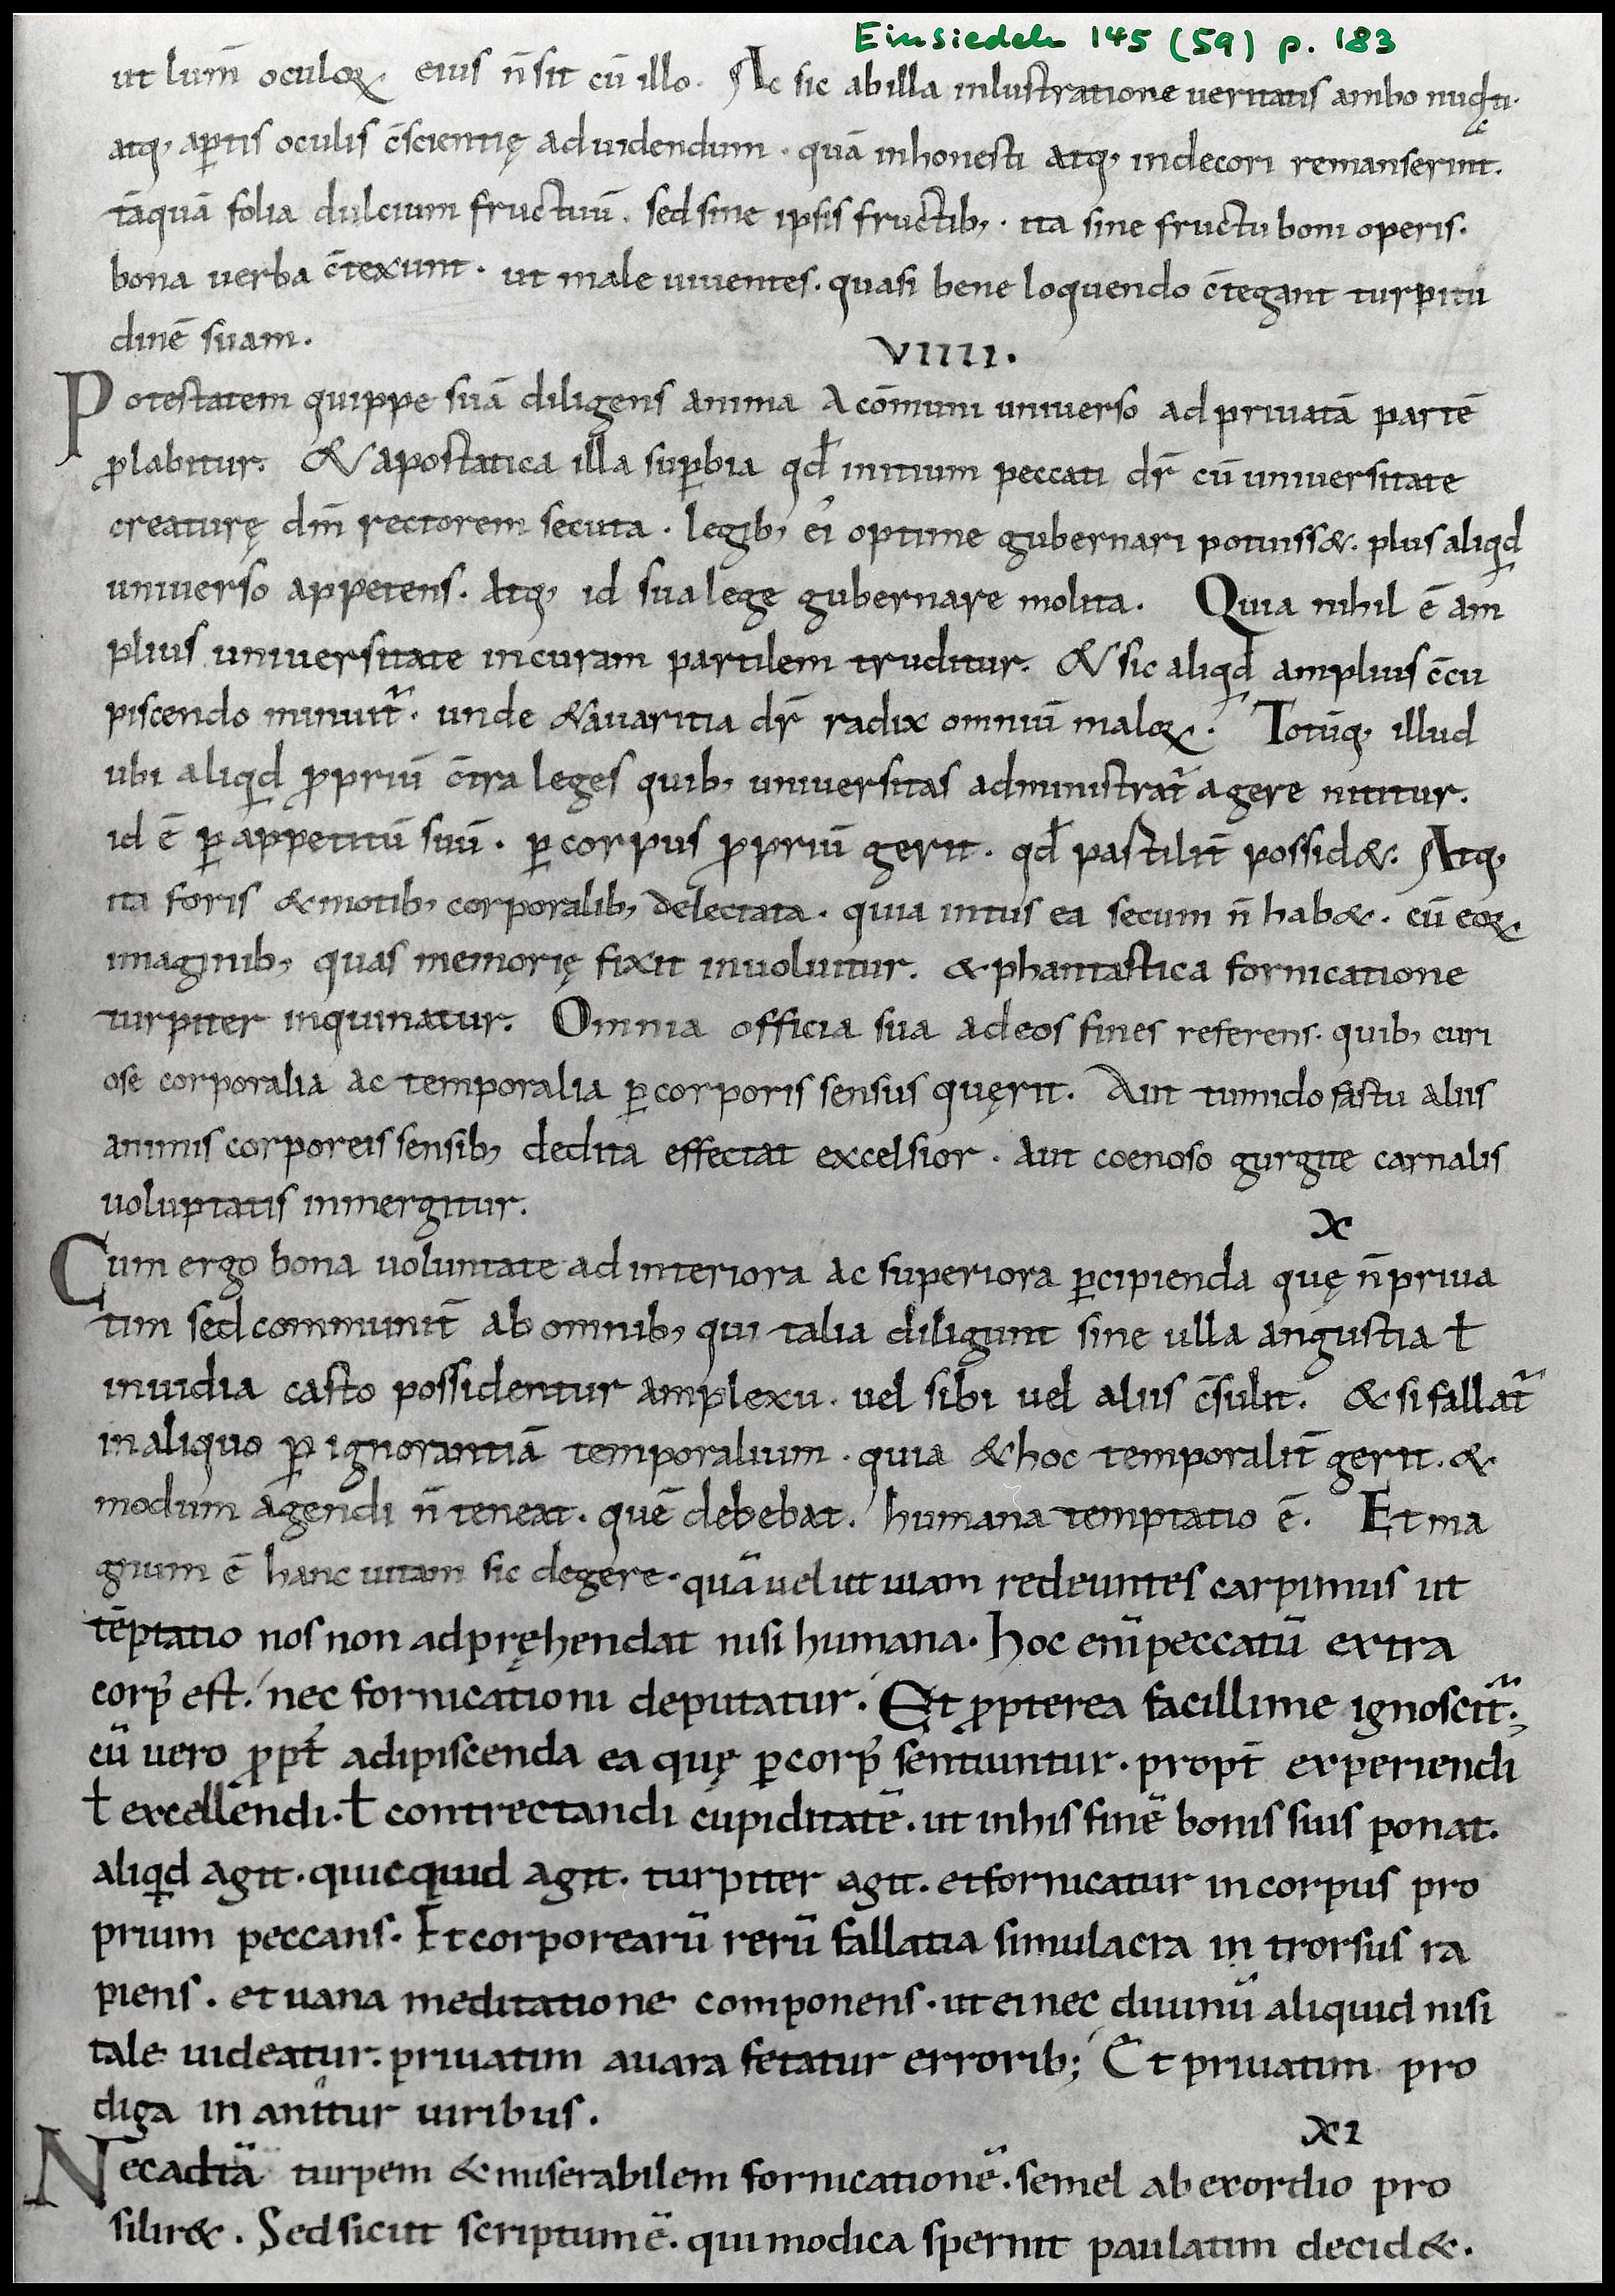 Einsiedeln 145 (59) p. 183
ut lum̄ oculoꝝ eius n̄ sit cū illo. Ac sic ab illa inlustratione ueritatis ambo nudati.
atq; aꝑtis oculis c̄scientię ad uidendum. quā inhonesti atq; indecori remanserint.
tāquā folia dulcium fructuū. sed sine ipsis fructib; . ita sine fructu boni operis.
bona verba c̄texunt. ut male uiuentes. quasi bene loquendo c̄tegant turpitu
dinē suam.
VIIII.
Potestatem quippe suā diligens anima A cōmuni universo ad priuatā partē
ꝓlabitur. & apostatica illa suꝑbia qđ initium peccati dr̄ cū universitate
creaturę dm̄ rectorem secuta. legib; ei' optime gubernari potuiss&. plus aliqd
universo appetens. Atq; id sua lege gubernare molita. Quia nihil ē am
plius universitate in curam partilem truditur. & sic aliqd amplius c̄cu
piscendo minuit᷑. unde & auaritia dr̄ radix omniū maloꝝ. Totūq; illud
ubi aliqd ꝓpriū c̄tra leges quib; universitas administrat᷑ agere nititur.
id ē ꝑ appetitū suū. ꝑ corpus ꝓpriū gerit. qđ pastilit̄ possid&. Atq;
ita foris & motib; corporalib; delectata. quia intus ea secum n̄ hab&. cū eoꝝ
imaginib; quas memorię fixit inuoluitur. & phantastica fornicatione
turpiter inquinatur. Omnia officia sua ad eos fines referens. quib; curi
ose corporalia ac temporalia ꝑ corporis sensus quęrit. Aut tumido fastu aliis
animis corporeis sensib; dedita effectat excelsior. Aut coenoso gurgite carnalis
uoluptatis inmergitur.
X
Cum ergo bona uoluntate ad interiora ac superiora ꝑcipienda quę n̄ priua
tim sed communit̄ ab omnib; qui talia diligunt sine ulla angustia ł
inuidia casto possidentur amplexu. uel sibi uel aliis c̄sulit. & si fallat᷑
in aliquo ꝑ ignorantiā temporalium. quia & hoc temporalit̄ gerit. &
modum agendi n̄ teneat. quē debebat. humana temptatio ē. Et ma
gnum ē hanc uitam sic degere. quā uelut uiam redeuntes carpimus ut
tēptatio nos non adpręhendat nisi humana. Hoc eni̅ peccatū extra
corp᷒ est. nec fornicationi deputatur. Et ꝓpterea facillime ignoscit᷑.;
cū vero ꝓpt̄ adipiscenda ea quę ꝑ corp᷒ sentiuntur. propt̄ experiendi
ł excellendi. ł contrectandi cupiditatē. ut in his finē bonis suis ponat.
aliqd agit. quicquid agit. turpiter agit. et fornicatur in corpus pro
prium peccans. Et corporearū rerū fallatia simulacra in trorsus ra
piens. et uana meditatione componens. ut ei nec diuinū aliquid nisi
tale uideatur. priuatim auara fetatur errorib; Et priuatim pro
diga in anitur uiribus.
XI
Nec ad tā turpem & miserabilem fornicationē. semel ab exordio pro
silir&. Sed sicut scriptum ē. qui modica spernit paulatim decid&.